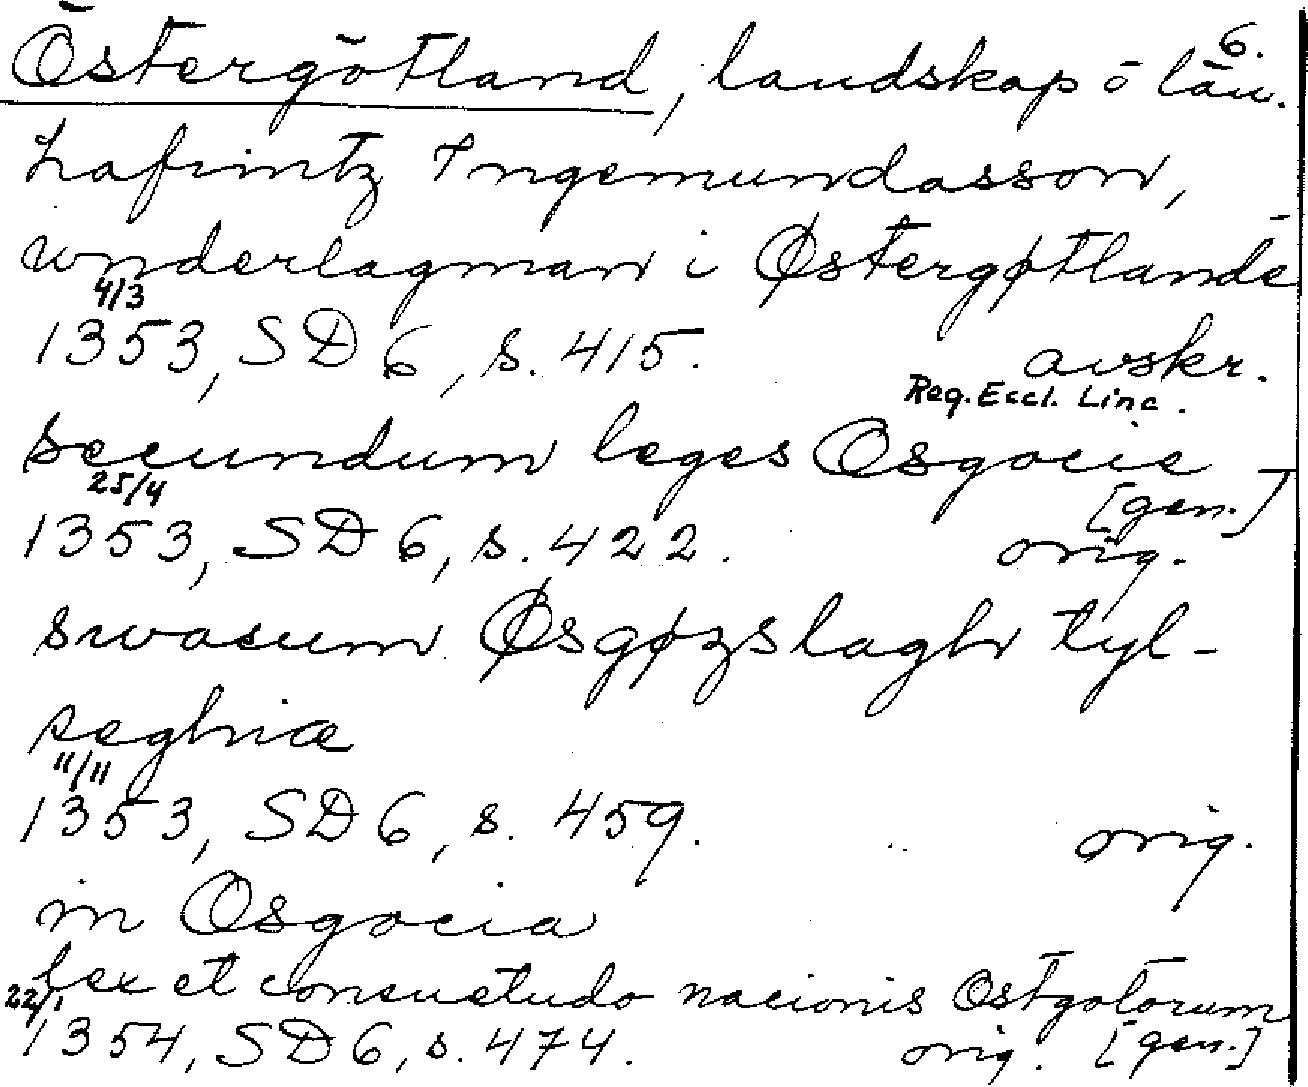 6.
Östergötland, landskap o län.
Lafrintz Ingemundasson,
wnderlagman i Østergøtlande
4/3
1353, SD 6, s. 415. avskr.
Reg. Eccl. Linc.
secundum leges Osgocie
25/4 [gen.]
1353, SD 6, s. 422. orig.
swasum Øsgøzslagh tyl-
seghiæ
11/11
1353, SD 6, s. 459. orig.
in Osgocia
lex et consuetudo nacionis Ostgotorum
22/1
1354, SD 6, s. 474. orig. [gen.]